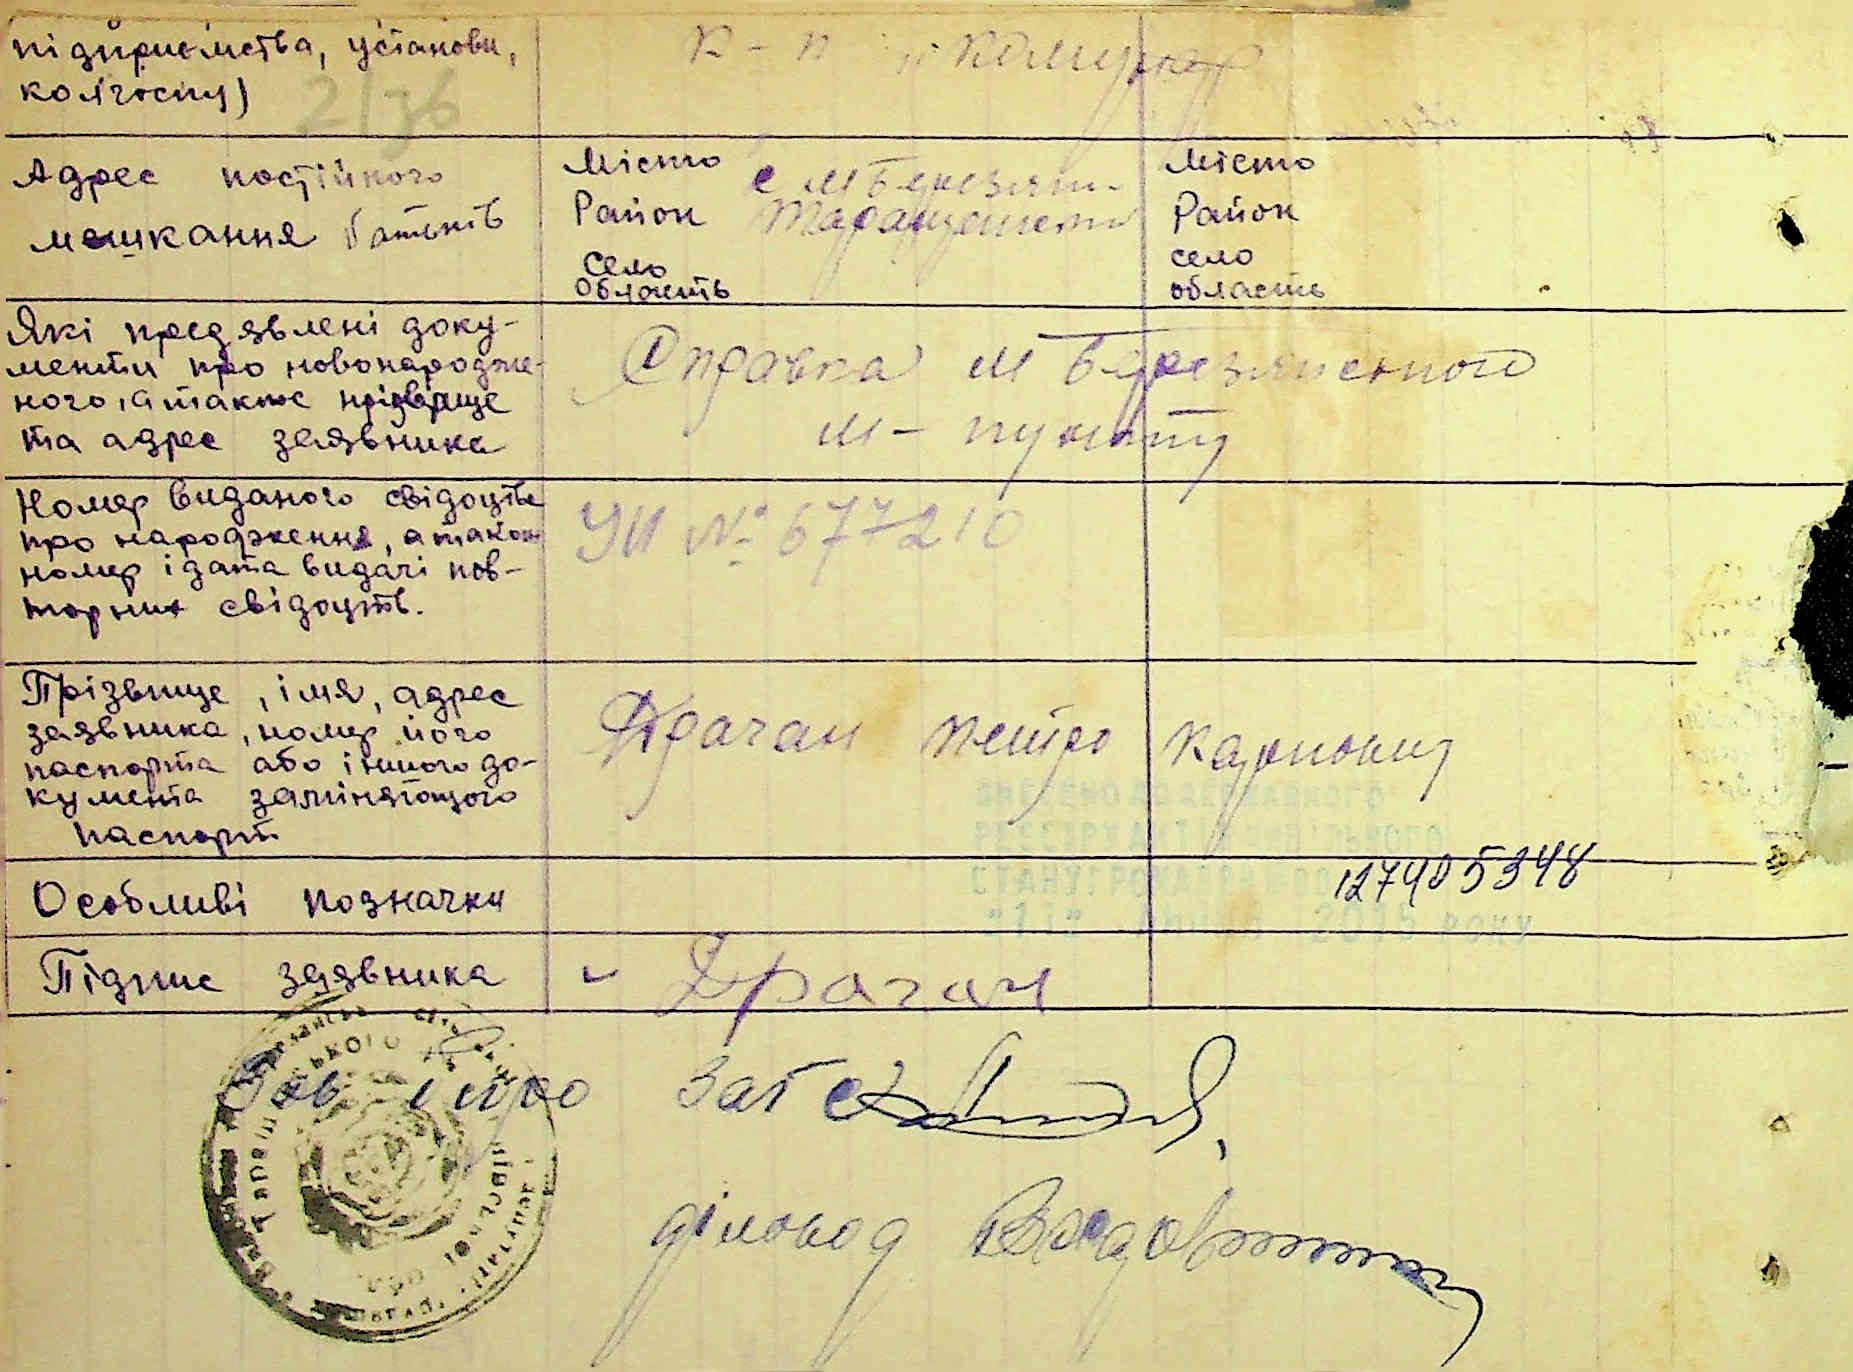 підприємства, установи,
колгоспу)
2/36
к-п "Комунар
Адрес постійного
мешкання батьків
Місто
Район
Село
Область
с М Березян.
Таращанськи
Місто
Район
село
область
Які предявлені доку-
менти про новонародже-
ного, а також прізвище
та адрес заявника
Справка М Березянського
м-пункту
Номер виданого свідоцтва
про народження, а також
номер і дата видачі пов-
торних свідоцтв.
УИ № 677210
Прізвище, імя, адрес
заявника, номер його
паспорта або іншого до-
кумента заміняющого
паспорт
Драган Петро Карпович
ВНЕСЕНО ДО ДЕРЖАВНОГО
РЕЄСТРУ АКТІВ ЦИВІЛЬНОГО
СТАНУ ГРОМАДЯН
"11" 2015 РОКУ
127405348
Особливі позначки
Підпис заявника
Драган
Зав бюро Загс
діловод